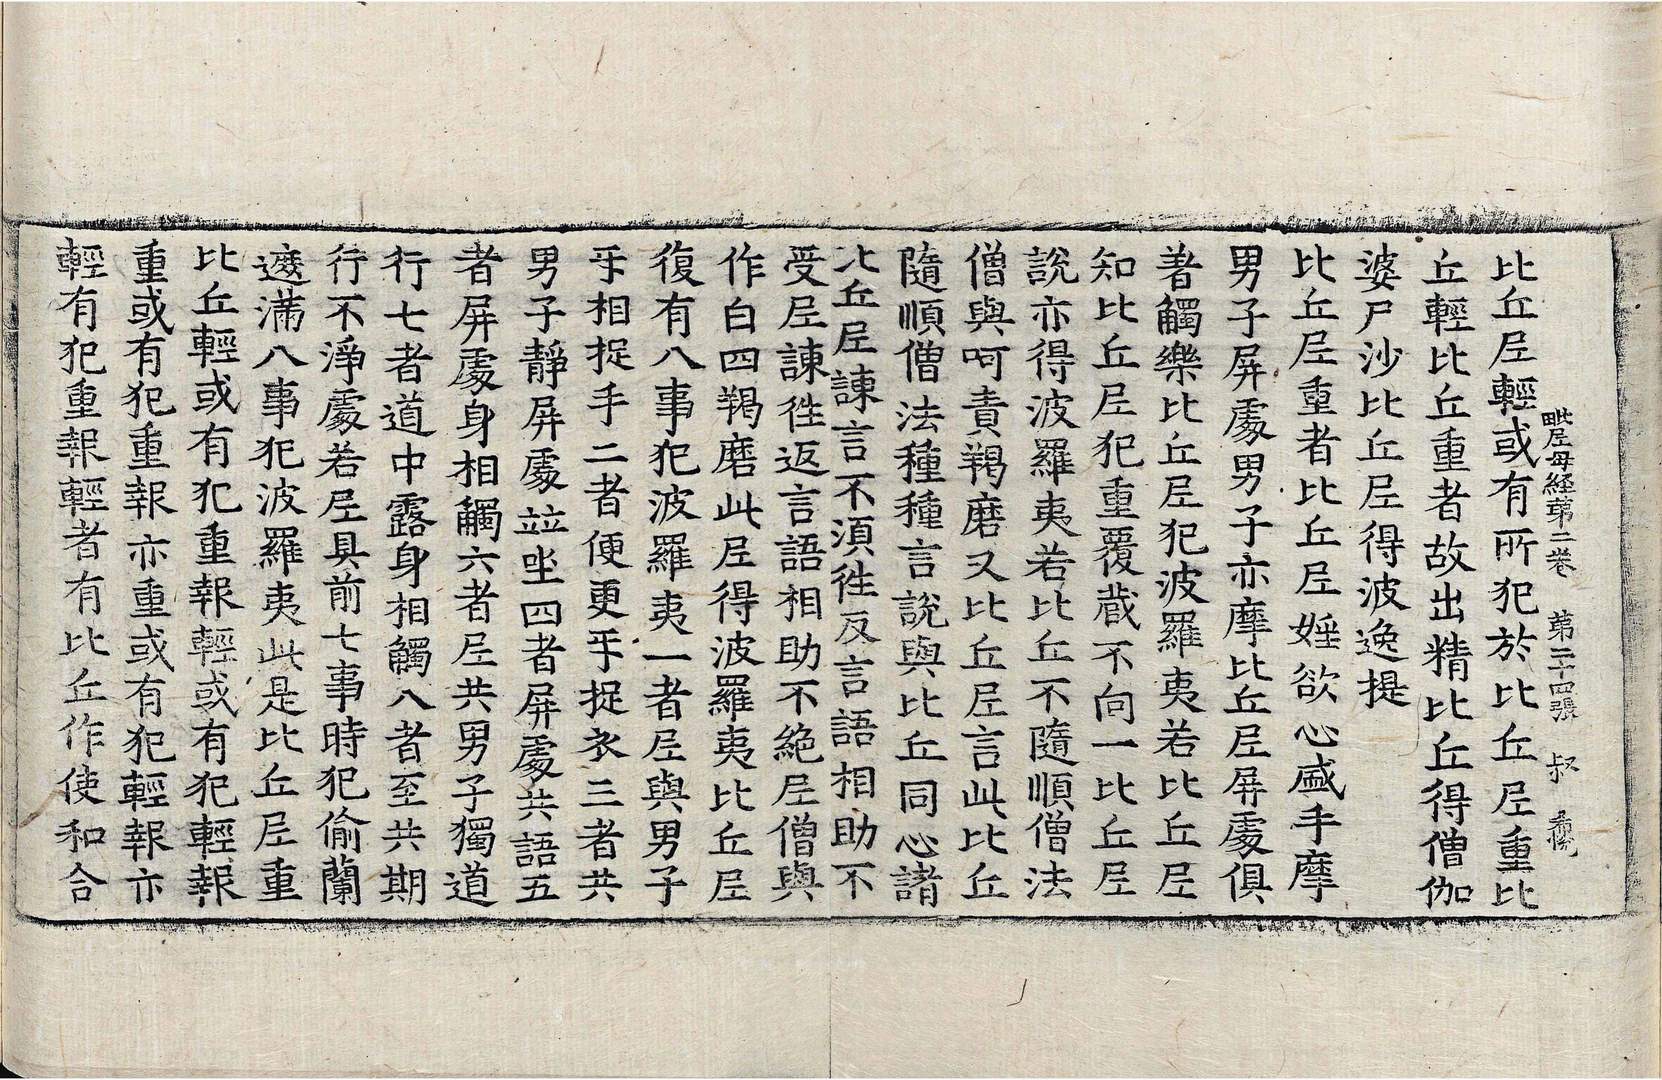 毗尼母経第二卷 第二十四張 叔
比丘尼輕或有所犯於比丘尼重比
丘輕比丘重者故出精比丘得僧伽
婆尸沙比丘尼得波逸提
比丘尼重者比丘尼婬欲心盛手摩
男子屏處男子亦摩比丘尼屏處俱
著觸樂比丘尼犯波羅夷若比丘尼
知比丘尼犯重覆蔵不向一比丘尼
說亦得波羅夷若比丘不隨順僧法
僧與呵責羯磨又比丘尼言此比丘
隨順僧法種種言說與比丘同心諸
比丘尼諫言不須徃反言語相助不
受尼諫徃返言語相助不絶尼僧與
作白四羯磨此尼得波羅夷比丘尼
復有八事犯波羅夷一者尼與男子
手相捉手二者便更手捉衣三者共
男子靜屏處竝坐四者屏處共語五
者屏處身相觸六者尼共男子獨道
行七者道中露身相觸八者至共期
行不淨處若尼具前七事時犯偷蘭
遮滿八事犯波羅夷此是比丘尼重
比丘輕或有犯重報輕或有犯輕報
重或有犯重報亦重或有犯輕報亦
輕有犯重報輕者有比丘作使和合